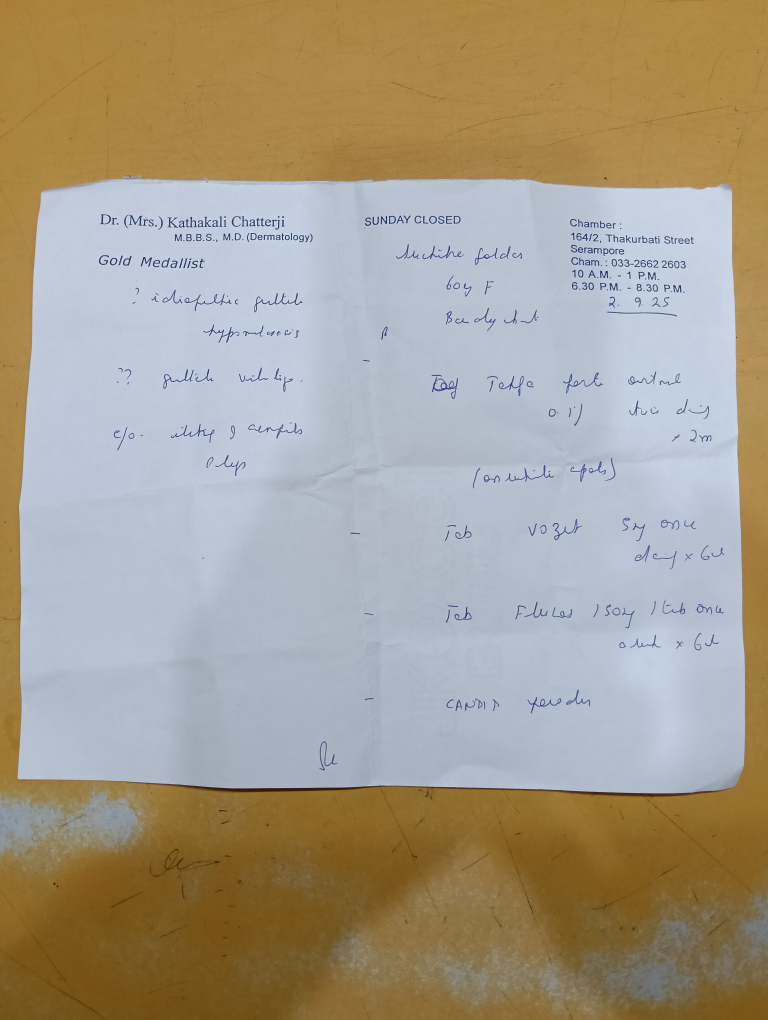 Dr. (Mrs.) Kathakali Chatterji
M.B.B.S., M.D. (Dermatology)
Gold Medallist
SUNDAY CLOSED
Chamber :
164/2, Thakurbati Street
Serampore
Cham. : 033-2662 2603
10 A.M. - 1 P.M.
6.30 P.M. - 8.30 P.M.
2. 9. 25
60y F
? idiopathic guttate
hypomelanosis
?? guttate vitiligo.
c/o. itching
forte
0.1%
x 2m
(on white spots)
- Tab VOZET 5mg once
daily x 6w
- Tab 150mg 1 tab once
a week x 6w
- CANDID powder